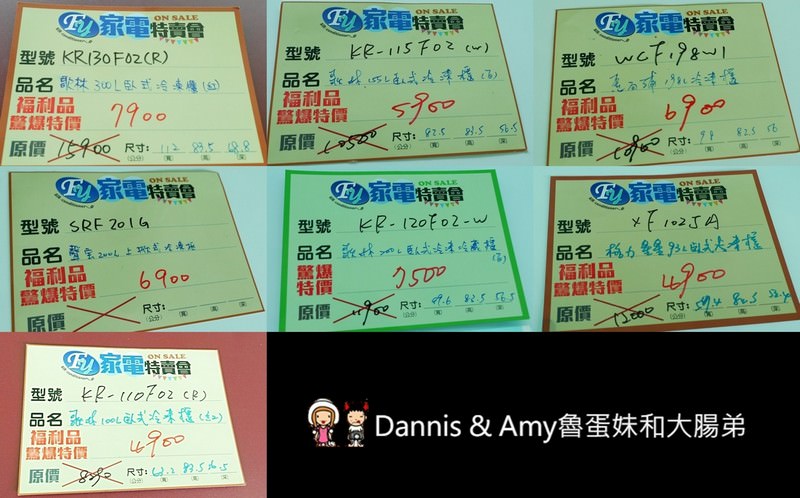 FU 家電特賣會 ON SALE
型號 KR130F02(R)
品名 歌林 300L臥式冷凍櫃(紅)
福利品
驚爆特價 7900
原價 15900 尺寸: 112 83.5 68.8
(公分) (寬) (高) (深)
FU 家電特賣會 ON SALE
型號 KR-115F02(W)
品名 歌林.155L臥式冷凍櫃(白)
福利品
驚爆特價 5900
原價 10500 尺寸: 82.5 83.5 56.5
(公分) (寬) (高) (深)
FU 家電特賣會 ON SALE
型號 WCF198W1
品名 惠而浦 198L冷凍櫃
福利品
驚爆特價 6900
原價 尺寸: 94 82.5 56
(公分) (寬) (高) (深)
FU 家電特賣會 ON SALE
型號 SRF201G
品名 聲寶200L上掀式冷凍櫃
福利品
驚爆特價 6900
原價 尺寸:
(公分) (寬) (高) (深)
FU 家電特賣會 ON SALE
型號 KR-120F02-W
品名 歌林 200L臥式冷凍冷藏櫃(白)
驚爆
特價 7500
原價 11900 尺寸: 99.6 83.5 56.5
(公分) (寬) (高) (深)
FU 家電特賣會 ON SALE
型號 XF102JA
品名 93L臥式冷凍櫃
福利品
驚爆特價 4900
原價 12000 尺寸: 59.4 82.5
(公分) (寬) (高) (深)
FU 家電特賣會 ON SALE
型號 KR-110F02(R)
品名 歌林100L臥式冷凍櫃(紅)
福利品
驚爆特價 4900
原價 尺寸: 63.2 83.5 56.5
(公分) (寬) (高) (深)
Dannis & Amy魯蛋妹和大腸弟